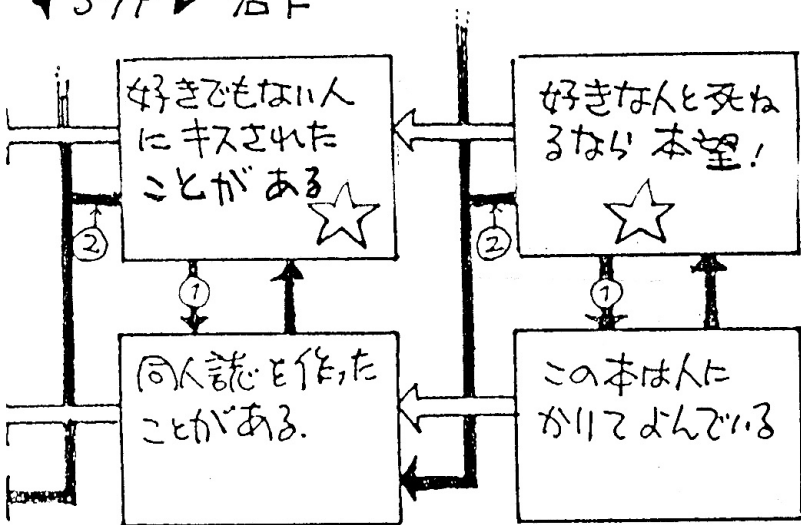 好きでもない人
にキスされた
ことがある
②
①
好きな人と死ね
るなら本望!
②
①
同人誌を作った
ことがある.
この本は人に
かりてよんでいる